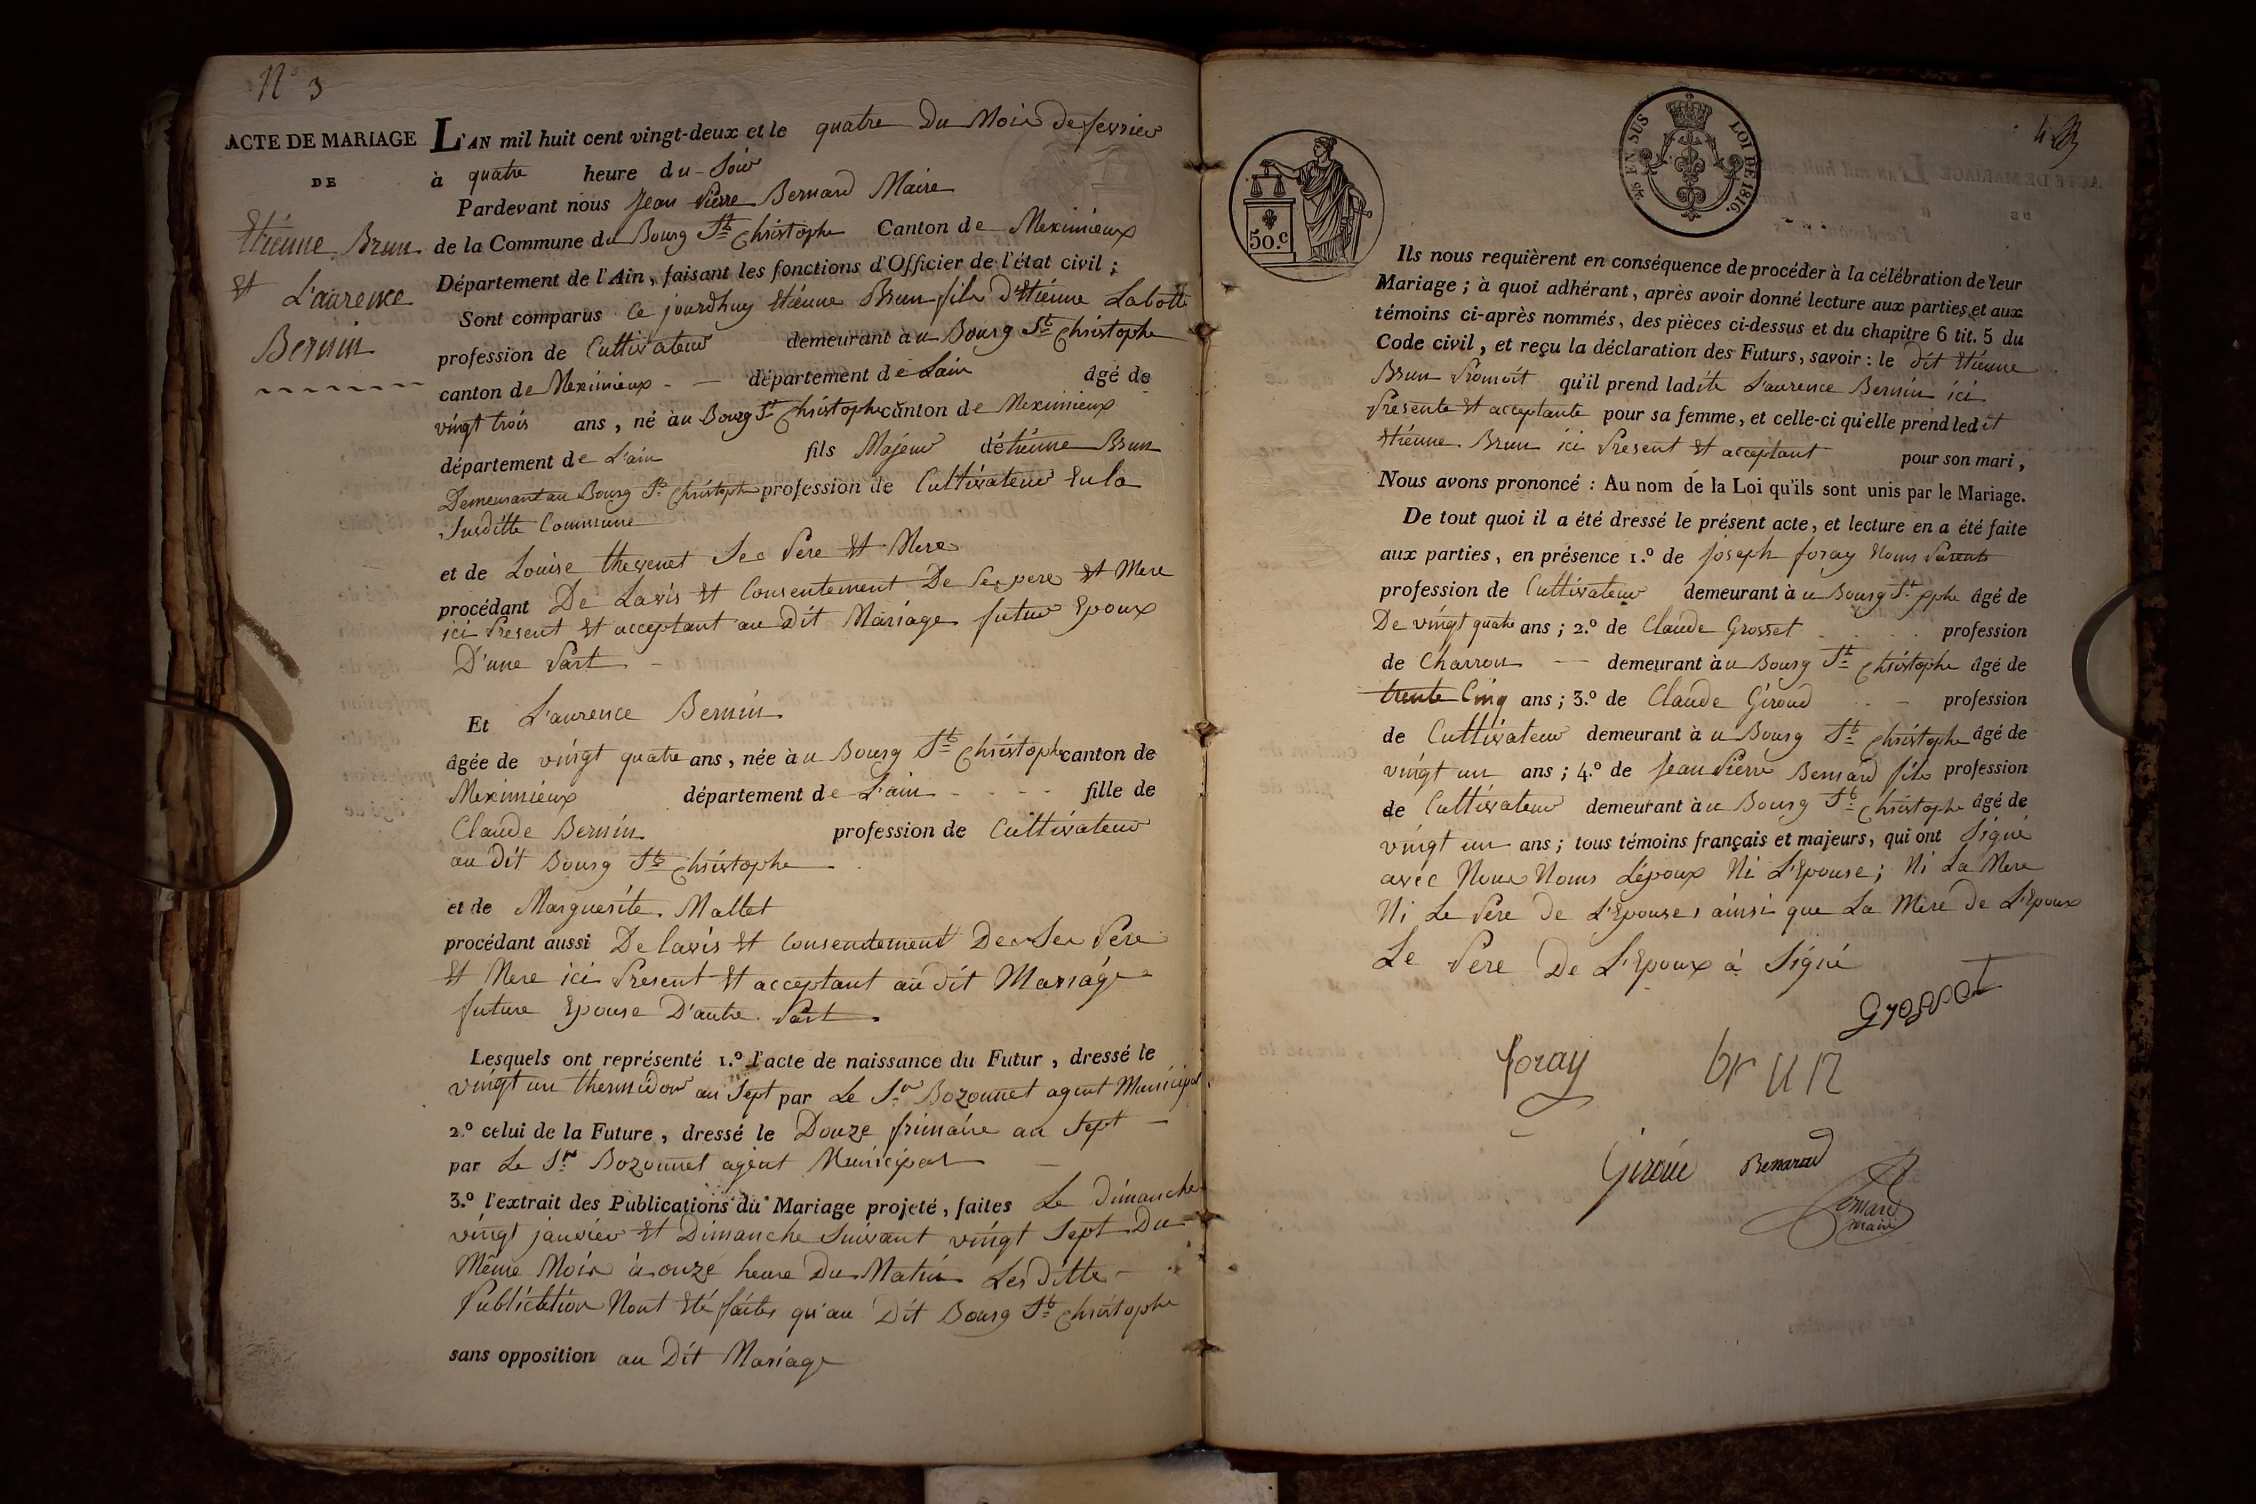 N° 3
ACTE DE MARIAGE
DE
Etienne Brun
Et L'aurence
Bernin
L'AN mil huit cent vingt-deux et le quatre Du Mois De fevrier
à quatre heure du Soir
Pardevant nous Jean Pierre Bernard Maire
de la Commune du Bourg St Christophe Canton de Meximieux
Département de l'Ain, faisant les fonctions d'Officier de l'état civil ;
Sont comparus Ce jourdhuy Etienne Brun fils D'Etienne Labotte
profession de Cultivateur demeurant au Bourg St Christophe
canton de Meximieux - — département de Lain âgé de
vingt trois ans, né au Bourg St Christophe canton de Meximieux
département de L'ain fils Majeur d'étienne Brun
Demeurant au Bourg St Christophe profession de Cultivateur En la
Susditte Commune
et de Louise thevenet Ses Pere Et Mere
procédant De Lavis Et Consentement De Ses pere Et Mere
ici Present Et acceptant au Dit Mariage futur Epoux
D'une Part -
Et L'aurence Bernin
âgée de vingt quatre ans, née au Bourg St Christophe canton de
Meximieux département de L'ain - - - - fille de
Claude Bernin profession de Cultivateur
au Dit Bourg St Christophe
et de Marguerite Mallet
procédant aussi De lavis Et Consentement De Ses Pere
Et Mere ici Present Et acceptant au Dit Mariage
future Epouse D'autre Part.
Lesquels ont représenté 1.° l'acte de naissance du Futur, dressé le
vingt un thermidor an Sept par Le Sr Bozonnet agent Municipal
2.° celui de la Future, dressé le Douze frimaire an Sept —
par Le Sr Bozonnet agent Municipal —
3.° l'extrait des Publications du Mariage projeté, faites Le Dimanche
vingt janvier Et Dimanche Suivant vingt Sept Du
Même Mois à onze heure Du Matin Les Ditte
Publication Nont Eté faites qu'au Dit Bourg St Christophe
sans opposition au Dit Mariage
50.c
EN SUS
LOI DE 1816.
Ils nous requièrent en conséquence de procéder à la célébration de leur
Mariage ; à quoi adhérant, après avoir donné lecture aux parties et aux
témoins ci-après nommés, des pièces ci-dessus et du chapitre 6 tit. 5 du
Code civil, et reçu la déclaration des Futurs, savoir : le dit Etienne
Brun Promoit qu'il prend ladite L'aurence Bernin ici
Presente Et acceptante pour sa femme, et celle-ci qu'elle prend ledit
Etienne Brun ici Present Et acceptant pour son mari,
Nous avons prononcé : Au nom de la Loi qu'ils sont unis par le Mariage.
De tout quoi il a été dressé le présent acte, et lecture en a été faite
aux parties, en présence 1.° de Joseph foray Noms Parents
profession de Cultivateur demeurant à u Bourg St Xphe âgé de
De vingt quatre ans ; 2.° de Claude Grosset profession
de Charron — demeurant à u Bourg St Christophe âgé de
trente Cinq ans ; 3.° de Claude Giroud - - profession
de Cultivateur demeurant à u Bourg St Christophe âgé de
vingt un ans ; 4.° de Jean Pierre Bernard fils profession
de Cultivateur demeurant à u Bourg St Christophe âgé de
vingt un ans ; tous témoins français et majeurs, qui ont Signé
avec Nous Noms L'époux Ni L'Epouse ; Ni La Mere
Ni Le Pere De L'Epouse, ainsi que La Mere De L'Epoux
Le Pere De L'Epoux à Signé
Grosset
foray brun
Girou Bernard
Bernard
maire